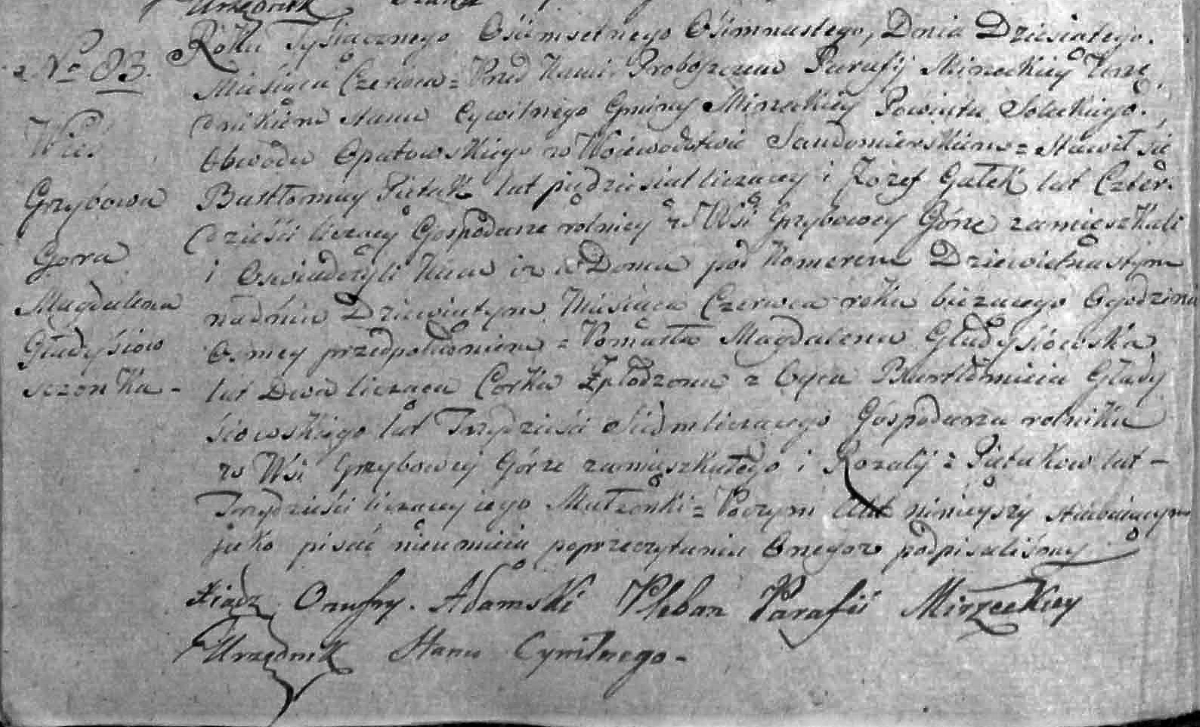 Urzędnik Stanu
No 83.
Wieś
Grzybowa
Gora
Magdalena
Gładysiow
sczonka -
Roku Tysiącznego Ośmsetnego Ośmnastego, Dnia Dziesiątego.
Miesiąca Czerwca = Przed Nami Proboszczem Parafij Mirzeckiey Urzę
dnikiem Stanu Cywilnego Gminy Mirzeckiey Powiatu Soleckiego.,
Obwodu Opatowskiego w Wojewodztwie Sandomierskiem = Stawił się
Bartłomiey Piętak lat piędziesiąt liczący i Józef Gałek lat Czter-
dzieści liczący Gospodarze rolnicy w Wsi Grzybowey Górze zamieszkali
i Oswiadczyli Nam iż w Domu pod Numerem Dziewiętnastym
nadniu Dziewiątym Miesiąca Czerwca roku bieżącego Ogodzinie
Osmey przedpołudniem = Pomarła Magdalena Gładysiowska
lat Dwa licząca Corka Zpłodzona z Oyca Bartłomieia Głady
siowskiego lat Trzydzieści Siedm liczącego Gospodarza rolnika
w Wsi Grzybowey Górze zamieszkałego i Rozalij z Piętakow lat -
Trzydzieści liczącey jego Małżonki = Poczym Akt ninieyszy Stawaiącym
jako pisać nieumieią poprzeczytaniu Onegoż podpisaliśmy
Xiądz Onufry. Adamski Pleban Parafii Mirzeckiey
Urzędnik Stanu Cywilnego -